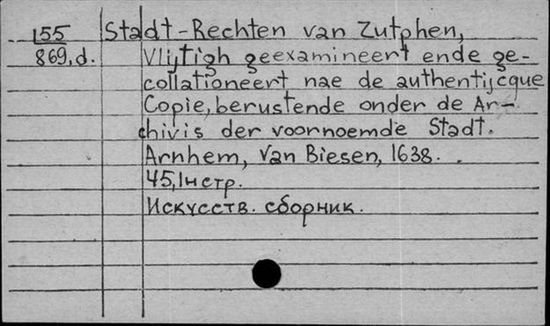 155 Stadt-Rechten van Zutphen,
869,d. Vlijtigh geexamineert ende ge-
collationeert nae de authentijcque
Copie, berustende onder de Ar-
chivis der voornoemde Stadt.
Arnhem, Van Biesen, 1638.
45, 1н стр.
Искусств. сборник.